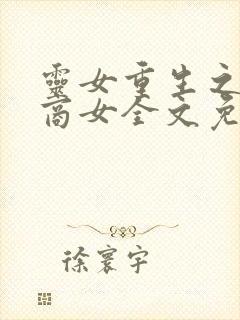 靈女重生之
商女全文免
徐寰宇